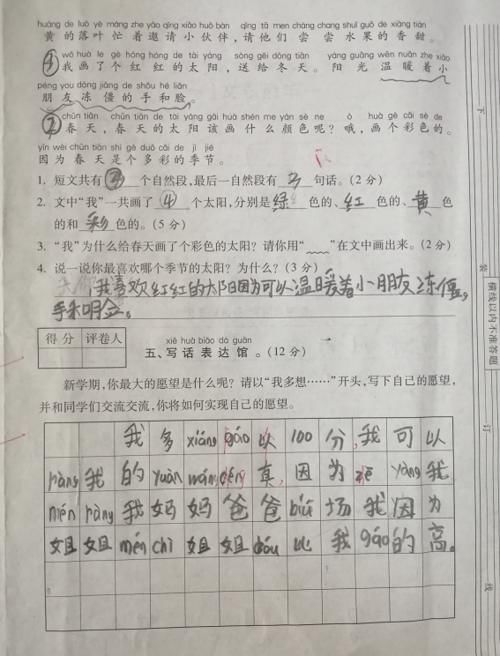 huáng de luò yè máng zhe yāo qǐng xiǎo huǒ bàn qǐng tā men cháng chang shuǐ guǒ de xiāng tián
黄的落叶忙着邀请小伙伴,请他们尝尝水果的香甜。
wǒ huà le gè hóng hóng de tài yáng sòng gěi dōng tiān yáng guāng wēn nuǎn zhe xiǎo
④我画了个红红的太阳,送给冬天。阳光温暖着小
péng you dòng jiāng de shǒu hé liǎn
朋友冻僵的手和脸。
chūn tiān chūn tiān de tài yáng gāi huà shén me yán sè ne ò huà gè cǎi sè de
春天,春天的太阳该画什么颜色呢?哦,画个彩色的。
yīn wèi chūn tiān shì gè duō cǎi de jì jié
因为春天是个多彩的季节。
1. 短文共有 个自然段,最后一自然段有 3 句话。(2 分)
2. 文中“我”一共画了 ④ 个太阳,分别是 绿 色的、红 色的、黄 色
的和 彩 色的。(5 分)
3. “我”为什么给春天画了个彩色的太阳?请你用“﹏﹏”在文中画出来。(2 分)
4. 说一说你最喜欢哪个季节的太阳?为什么?(3 分)
我喜欢红红的太阳因为可以温暖着小朋友冻僵,
手和
得分 评卷人
xiě huà biǎo dá guǎn
五、写话表达馆。(12 分)
新学期,你最大的愿望是什么呢?请以“我多想……”开头,写下自己的愿望,
并和同学们交流交流,你将如何实现自己的愿望。
我多xiáng gáo以100分,我可以
ràng我的yuàn 真,因为 yàng我
mén ràng我妈妈爸爸biú场我因为
姐姐mén chī姐姐 比我gāo的高。
下
装
横线以内不准答题
订
线